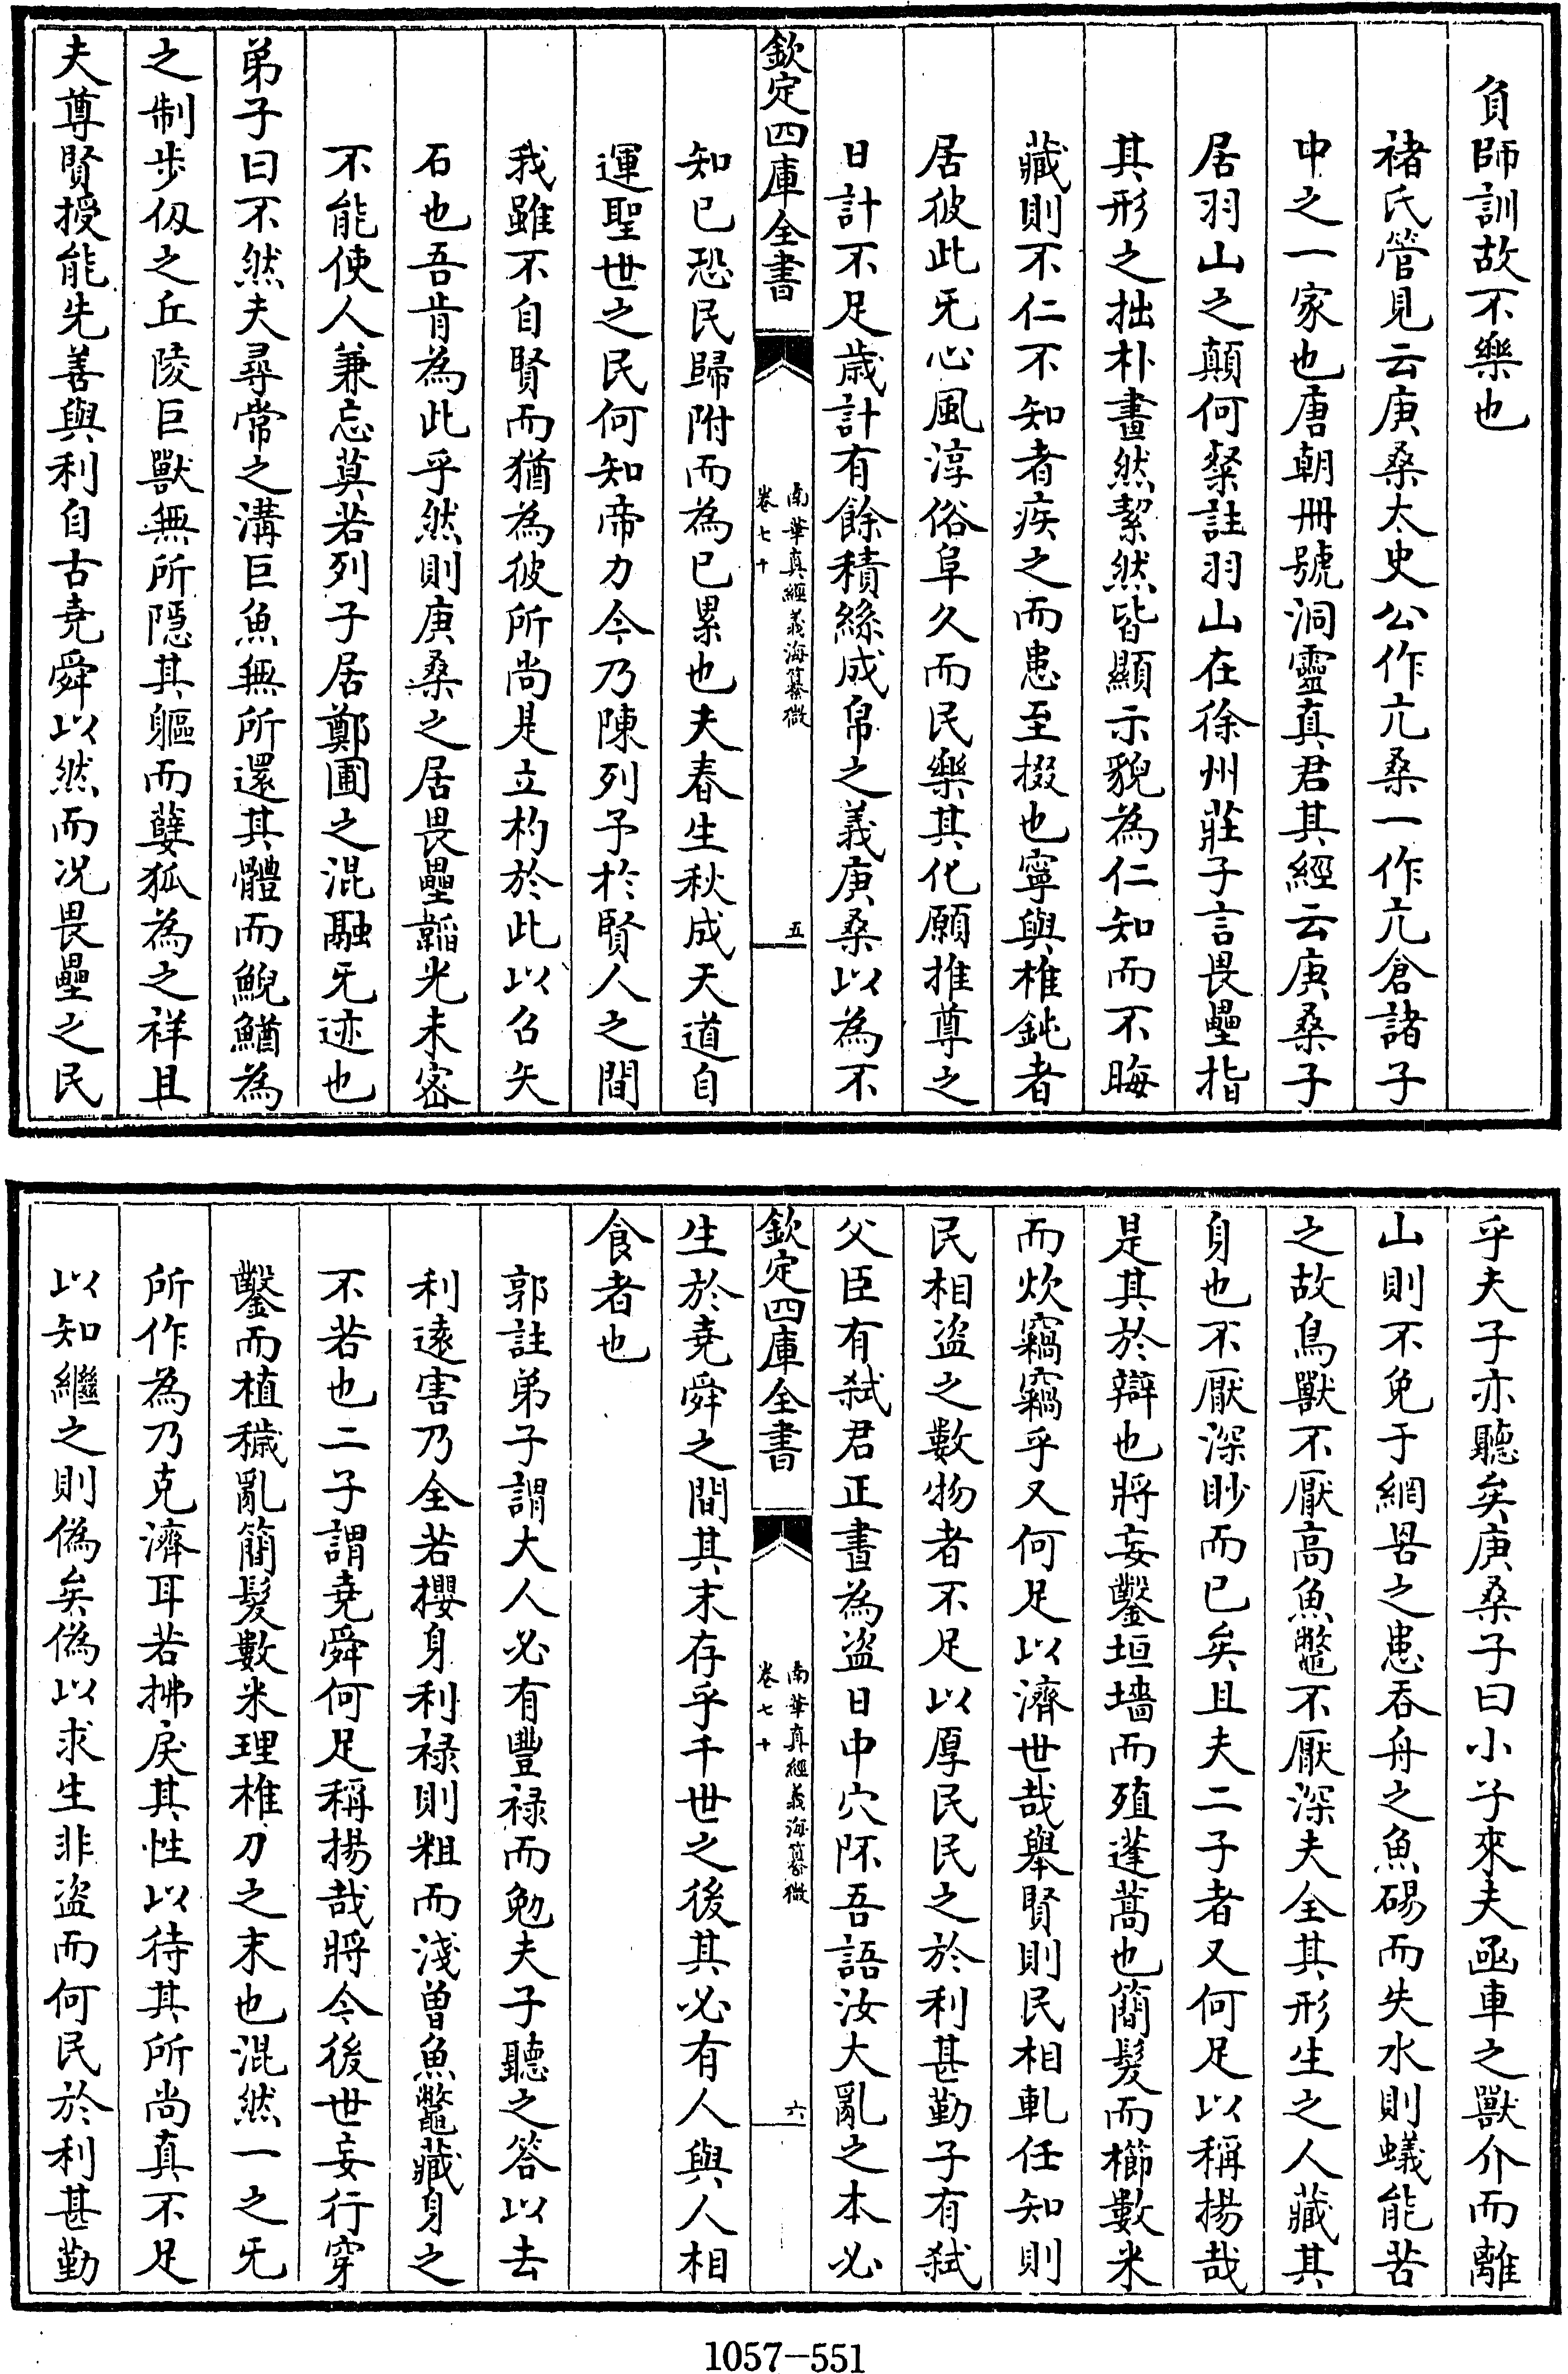 負師訓故不樂也
褚氏管見云庚桑太史公作亢桑一作亢倉諸子
中之一家也唐朝冊號洞靈真君其經云庚桑子
居羽山之顛何粲註羽山在徐州莊子言畏壘指
其形之拙朴畫然絜然皆顯示貌為仁知而不晦
藏則不仁不知者疾之而患至掇也寧與椎鈍者
居彼此旡心風淳俗阜久而民樂其化願推尊之
日計不足歳計有餘積絲成帛之義庚桑以為不
欽定四庫全書
南華真經義海纂微
卷七十
五
知已恐民歸附而為已累也夫春生秋成天道自
運聖世之民何知帝力今乃陳列予於賢人之間
我雖不自賢而猶為彼所尚是立杓於此以召矢
石也吾肯為此乎然則庚桑之居畏壘韜光未密
不能使人兼忘莫若列子居鄭圃之混融旡迹也
弟子曰不然夫尋常之溝巨魚無所還其體而鯢鰌為
之制步仭之丘陵巨獸無所隱其軀而㜸狐為之祥且
夫尊賢授能先善與利自古堯舜以然而况畏壘之民
乎夫子亦聽矣庚桑子曰小子來夫函車之獸介而離
山則不免于網罟之患吞舟之魚碭而失水則蟻能苦
之故鳥獸不厭高魚鼈不厭深夫全其形生之人藏其
身也不厭深眇而已矣且夫二子者又何足以稱揚哉
是其於辯也將妄鑿垣墻而殖蓬蒿也簡髮而櫛數米
而炊竊竊乎又何足以濟世哉舉賢則民相軋任知則
民相盗之數物者不足以厚民民之於利甚勤子有弑
父臣有弑君正晝為盗日中穴阫吾語汝大亂之本必
欽定四庫全書
南華真經義海纂微
卷七十
六
生於堯舜之間其末存乎千世之後其必有人與人相
食者也
郭註弟子謂大人必有豐禄而勉夫子聽之答以去
利遠害乃全若攖身利禄則粗而淺曽魚鼈藏身之
不若也二子謂堯舜何足稱揚哉將令後世妄行穿
鑿而植穢亂簡髮數米理椎刀之末也混然一之旡
所作為乃克濟耳若拂戾其性以待其所尚真不足
以知繼之則偽矣偽以求生非盗而何民於利甚勤
1057-551